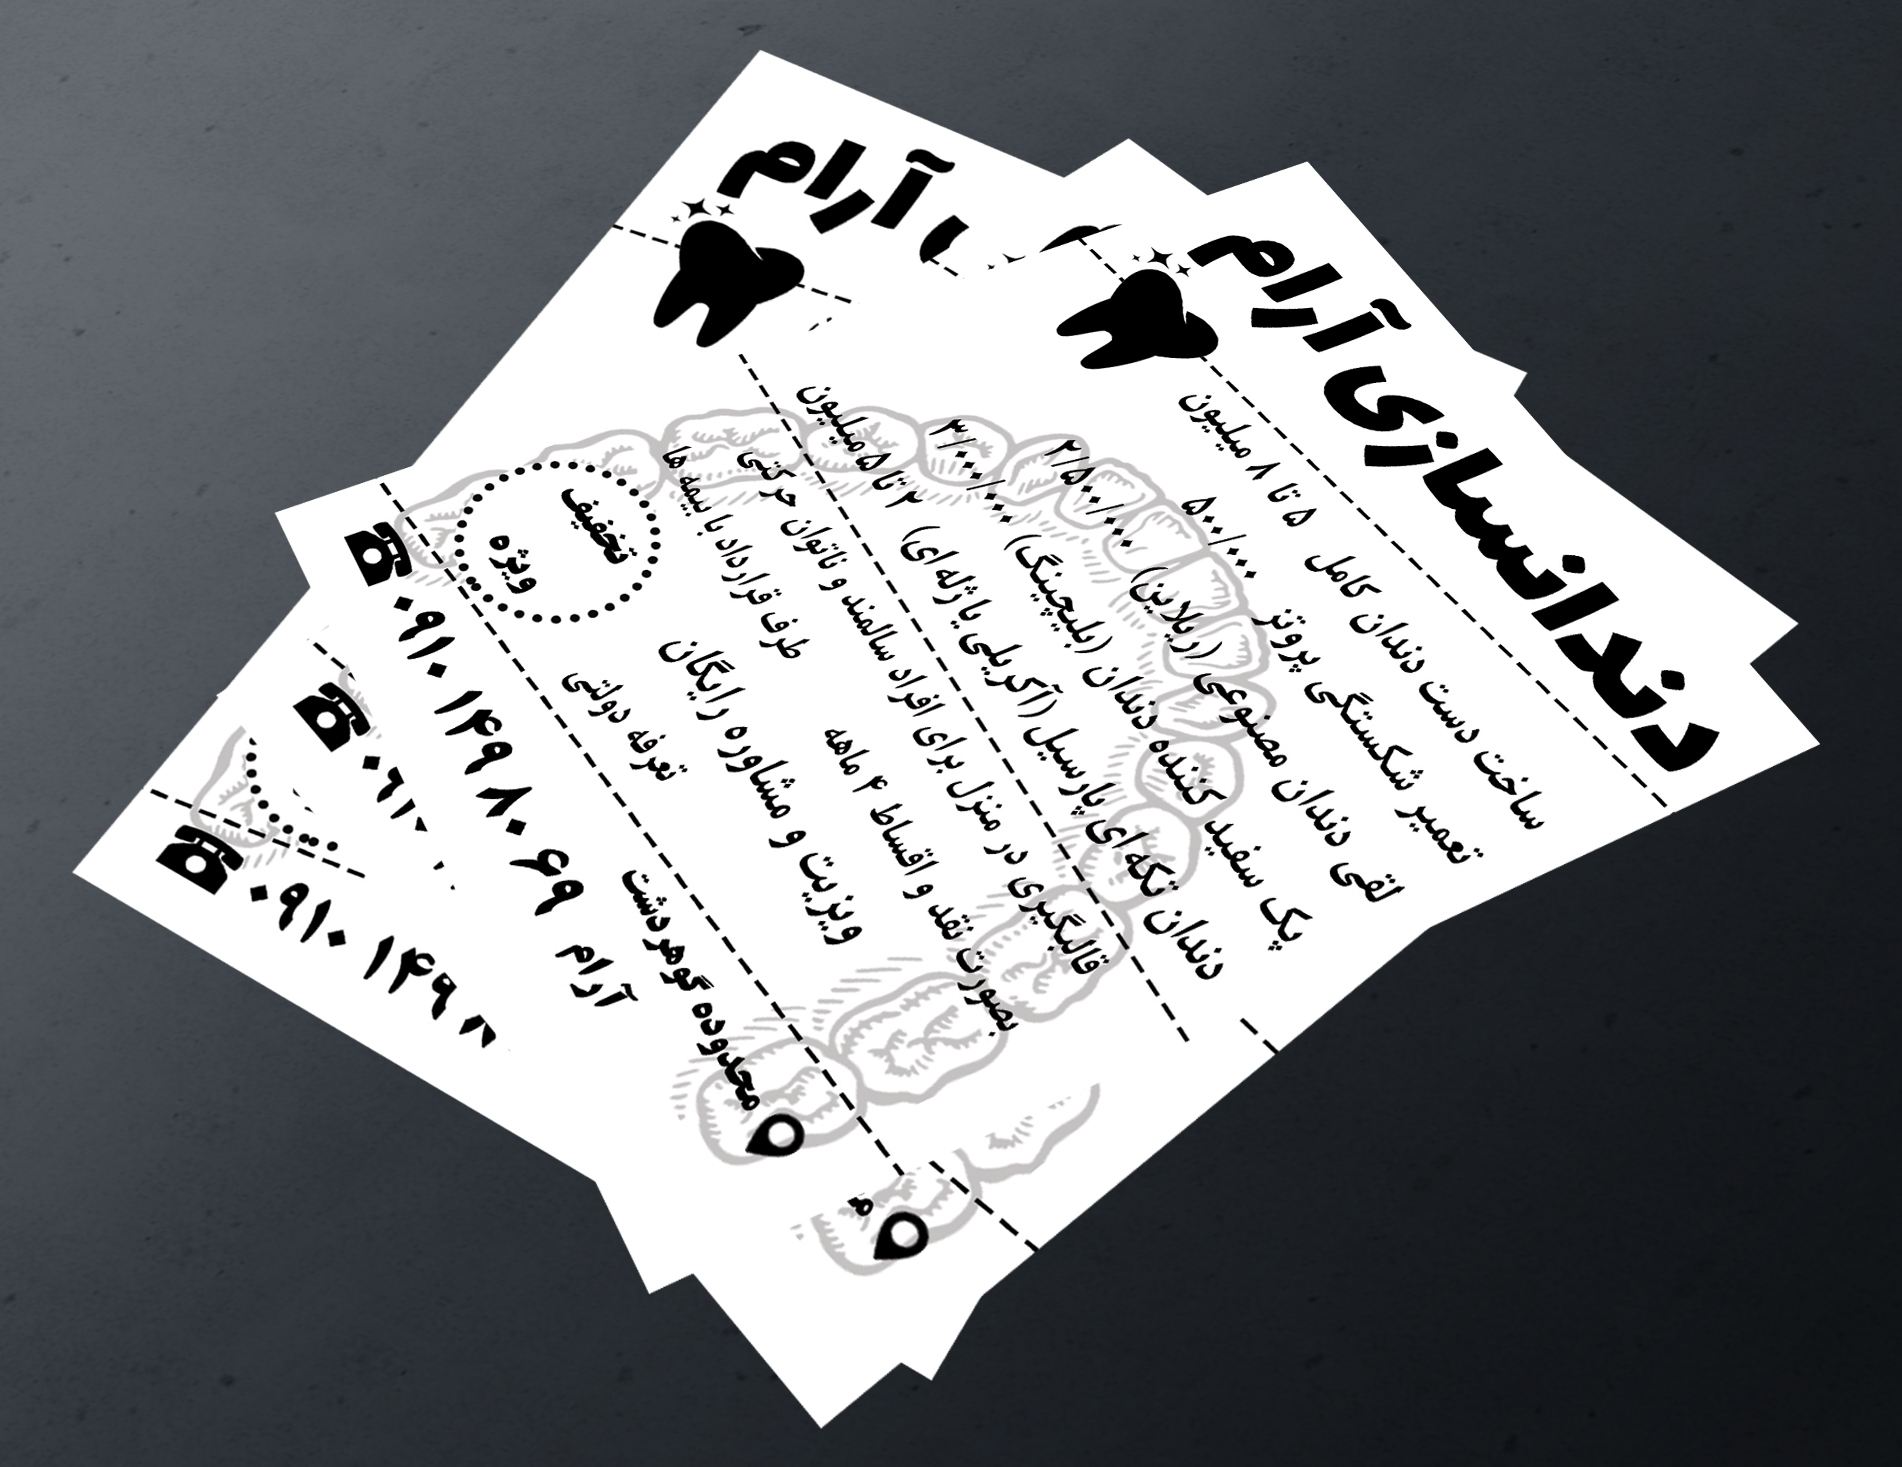 دندانسازی آرام
ساخت دست دندان کامل ۵ تا ۸ میلیون
تعمیر شکستگی پروتز ۵۰۰/۰۰۰
لقی دندان مصنوعی (ریلاین) ۲/۵۰۰/۰۰۰
پک سفید کننده دندان (بلیچینگ) ۳/۰۰۰/۰۰۰
دندان تکه ای پارسیل (آکریلی یا ژله ای) ۲ تا ۵ میلیون
قالبگیری در منزل برای افراد سالمند و ناتوان حرکتی
بصورت نقد و اقساط ۴ ماهه
طرف قرارداد با بیمه ها
ویزیت و مشاوره رایگان
تعرفه دولتی
تخفیف
ویژه
محدوده گوهردشت
آرام ۰۹۱۰ ۱۴۹ ۸۰ ۶۹
آرام
۰۹۱۰
۰۹۱۰ ۱۴۹